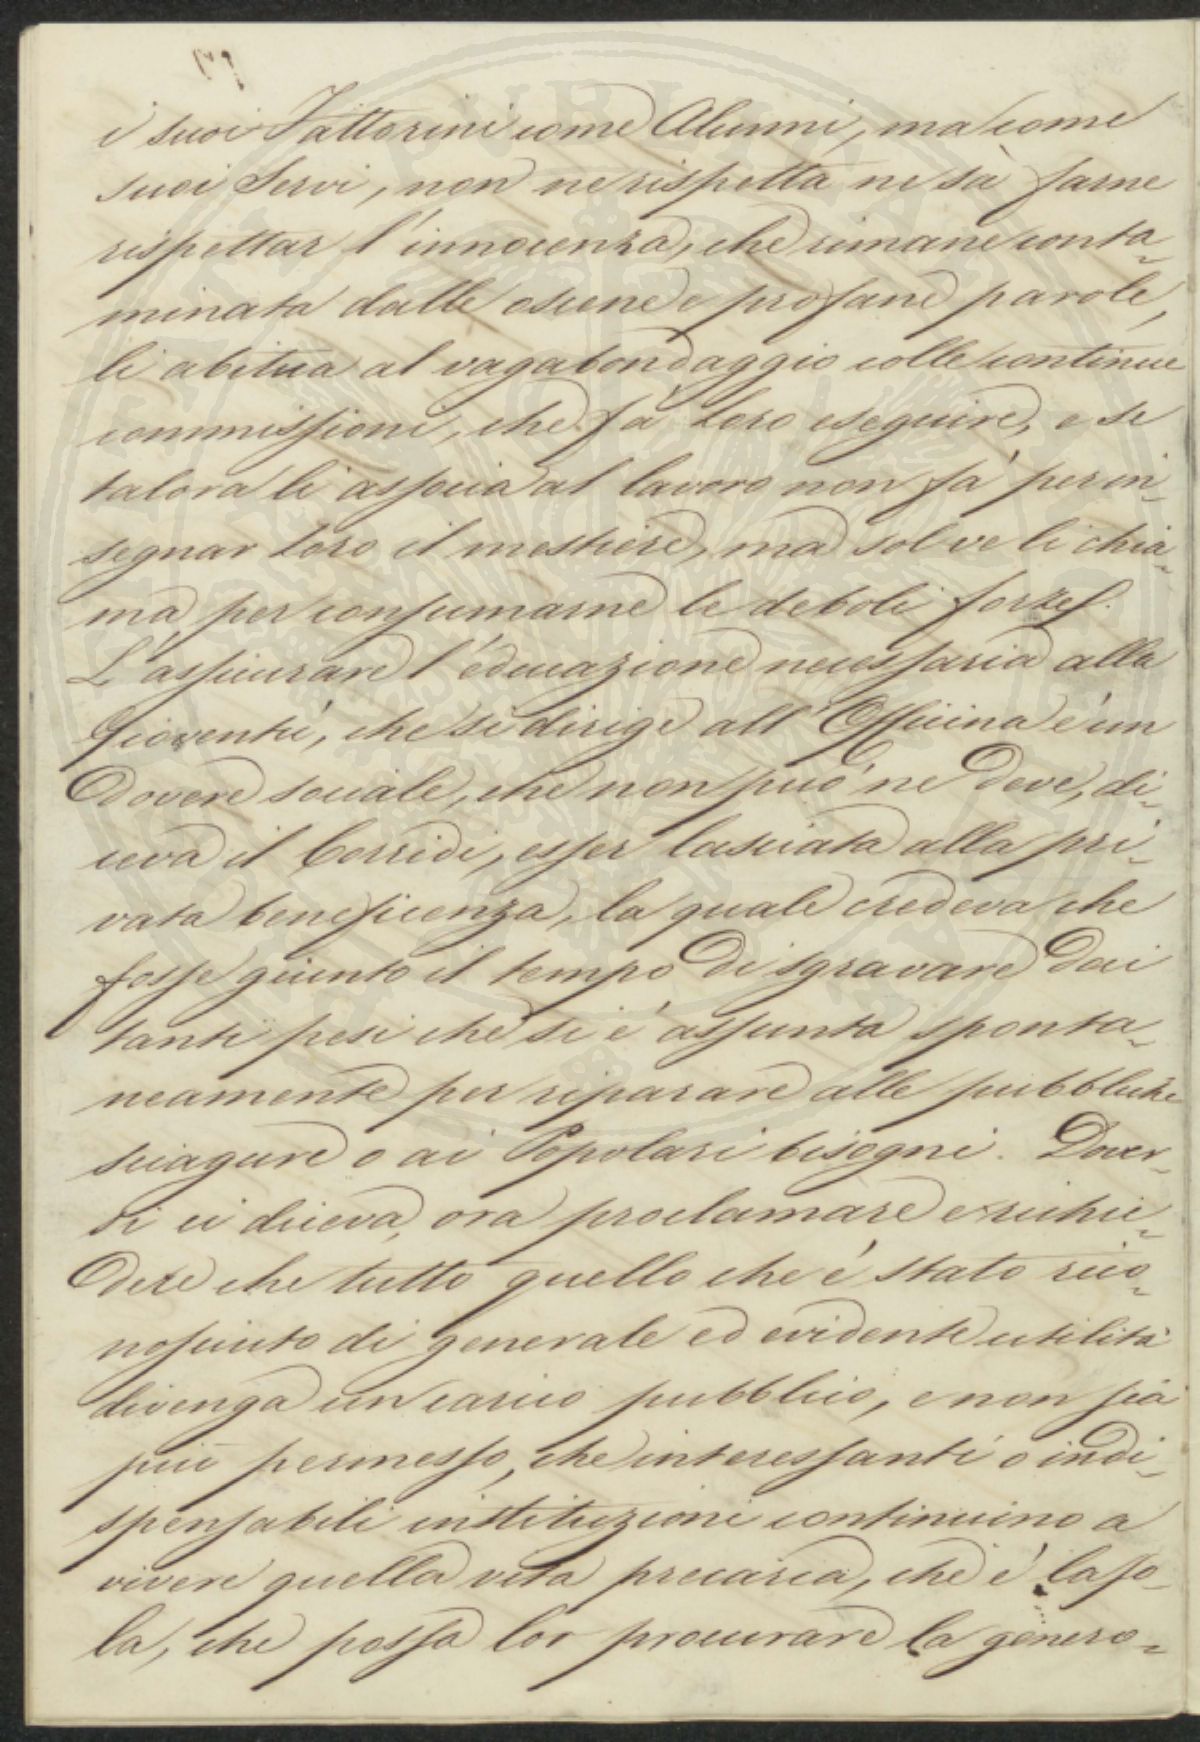 i suoi Fattorini come Alunni, ma come
suoi Servi, non ne rispetta ne sà farne
rispettar l'innocenza, che rimane conta-
minata dalle oscene e profane parole,
li abitua al vagabondaggio colle continue
commissioni, che fà loro eseguire, e se
talora li associa al lavoro non fà per in-
segnar loro il mestiere, ma sol ve li chia-
ma per consumarne le deboli forze.
L'assicurare l'educazione necessaria alla
Gioventù, che si dirige all'Officina è un
Dovere sociale, che non può ne Deve, di-
ceva il Corridi, esser lasciata alla pri-
vata beneficenza, la quale credeva che
fosse giunto il tempo Di sgravare Dai
tanti pesi che si è assunta sponta-
neamente per riparare alle pubbliche
sciagure o ai Popolari bisogni. Dover-
si ei diceva, ora proclamare e richie-
Dere che tutto quello che è stato rico-
nosciuto di generale ed evidente utilità
divenga un carico pubblico, e non sia
più permesso, che interessanti o indi-
spensabili instituzioni continuino a
vivere quella vita precaria, che è la so-
la, che possa lor procurare la genero-